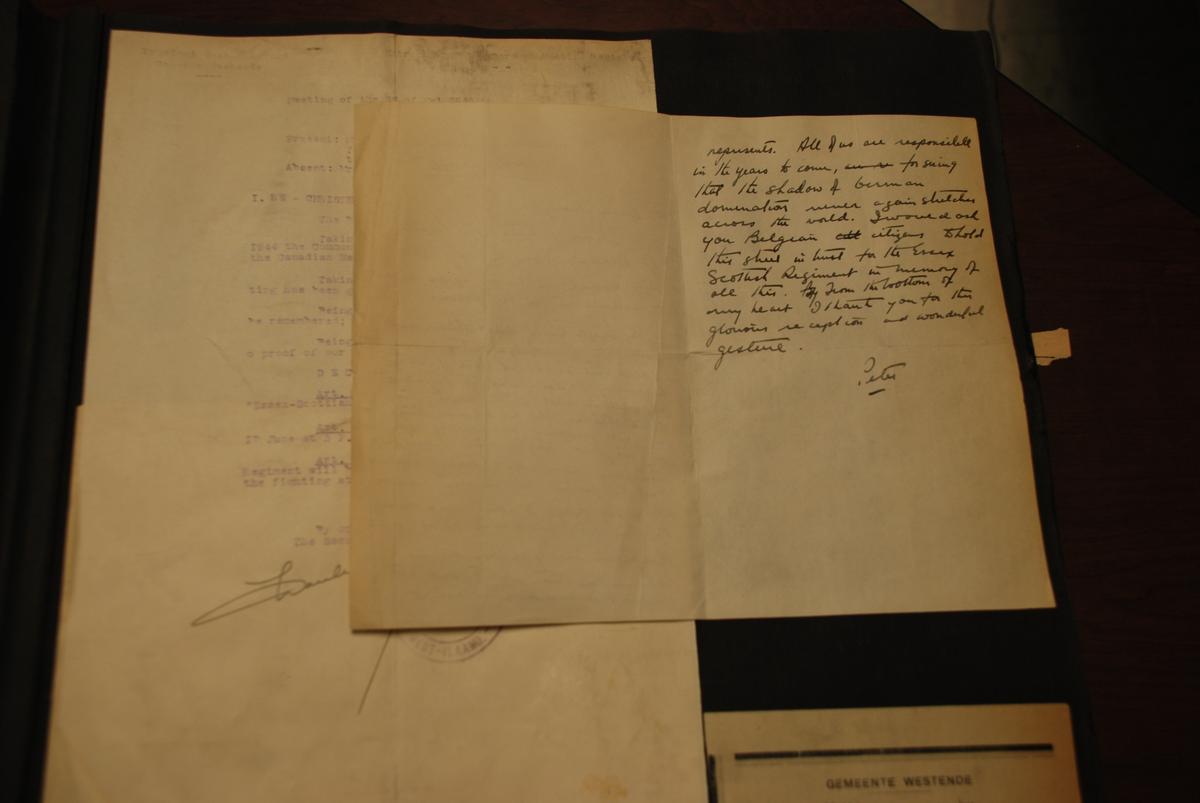 meeting of the
Present:
Absent:
I. BW - CHRISTE
The
Takin
1944 the Common
the Canadian
Takin
ting has been
Being
be remembered;
Being
o proof of our
D E C
Art.
"Essex-Scottish
Art.
17 June at 3 P.
Art.
Regiment will
the fighting at
By o
The Sec
ST-VLAAND
represents. All of us are responsible
in the years to come, for seeing
that the shadow of German
domination never again stretches
across the world. I would ask
you Belgian citizens to hold
this street in trust for the Essex
Scottish Regiment in memory of
all this. From the bottom of
my heart I thank you for this
glorious reception and wonderful
gesture.
Peter
GEMEENTE WESTENDE